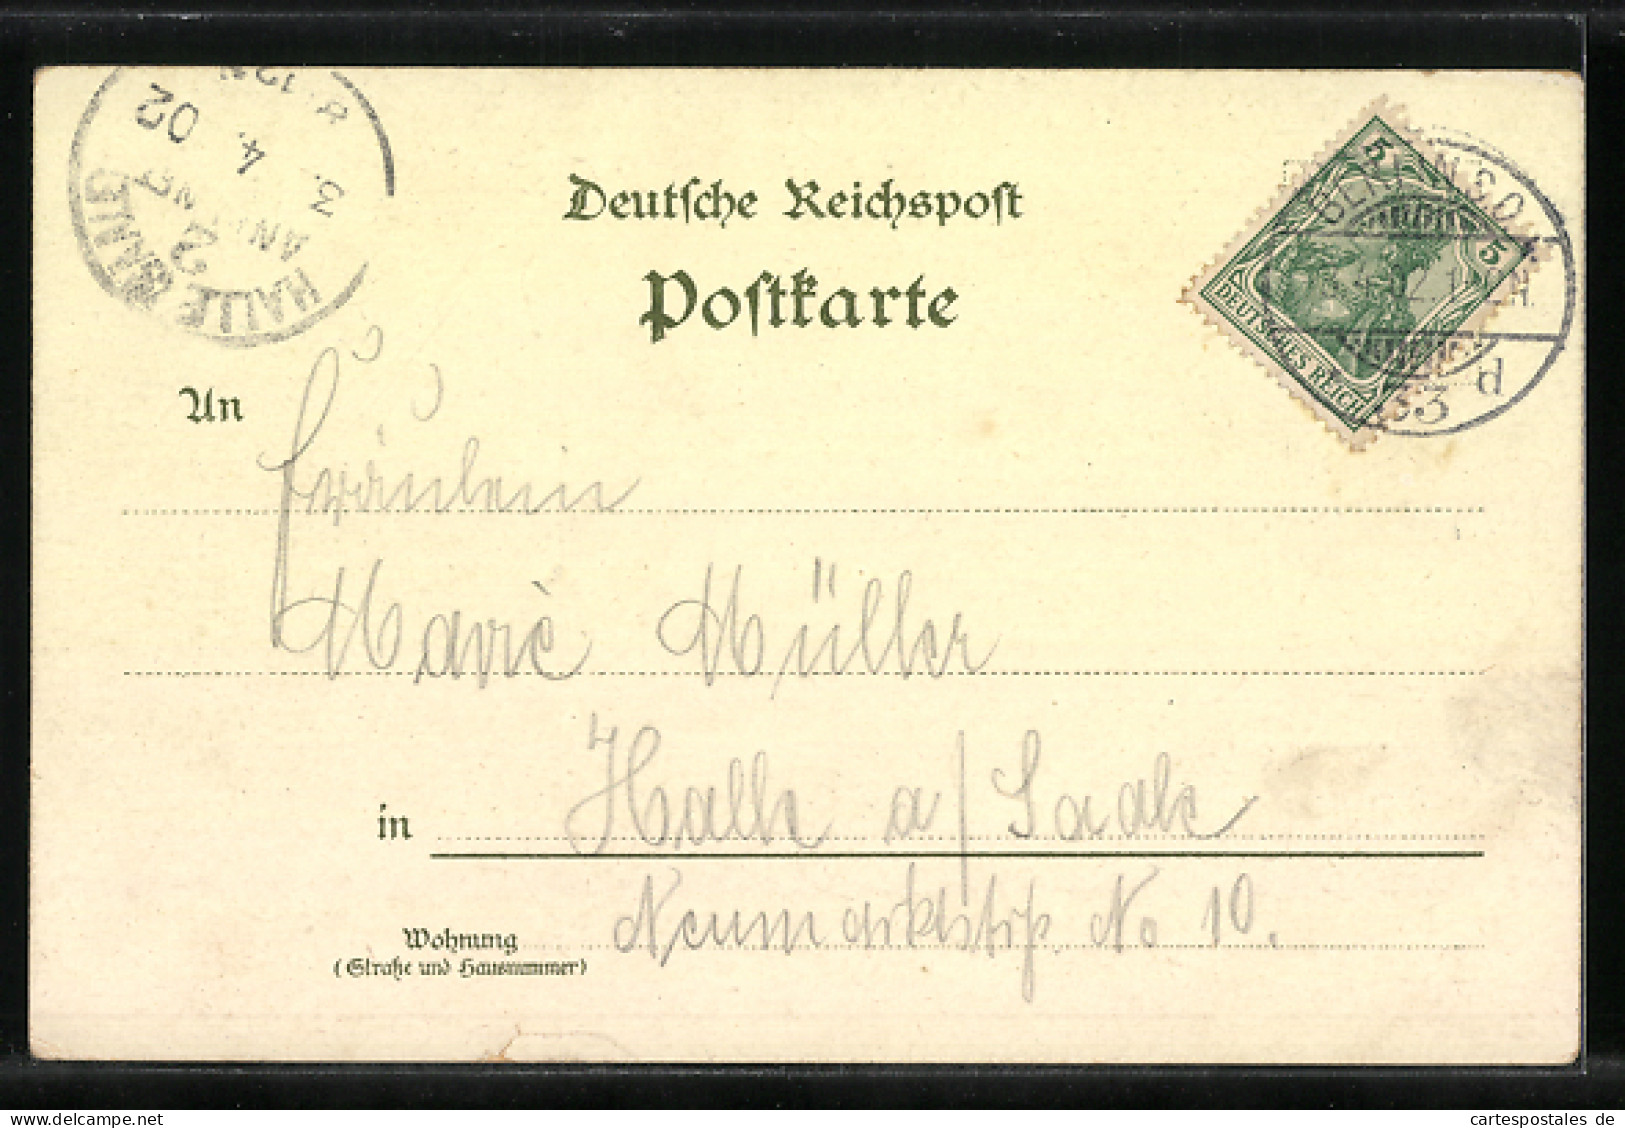 HALLE (SAALE)
2
3. 4. 02
Deutsche Reichspost
Postkarte
BERLIN S.O.
4.02.
33 d
5
5
DEUTSCHES REICH
An
Fräulein
Marie Müller
in Halle a/Saale
Wohnung Neumarktstr. No 10.
(Straße und Hausnummer)
cartespostales de